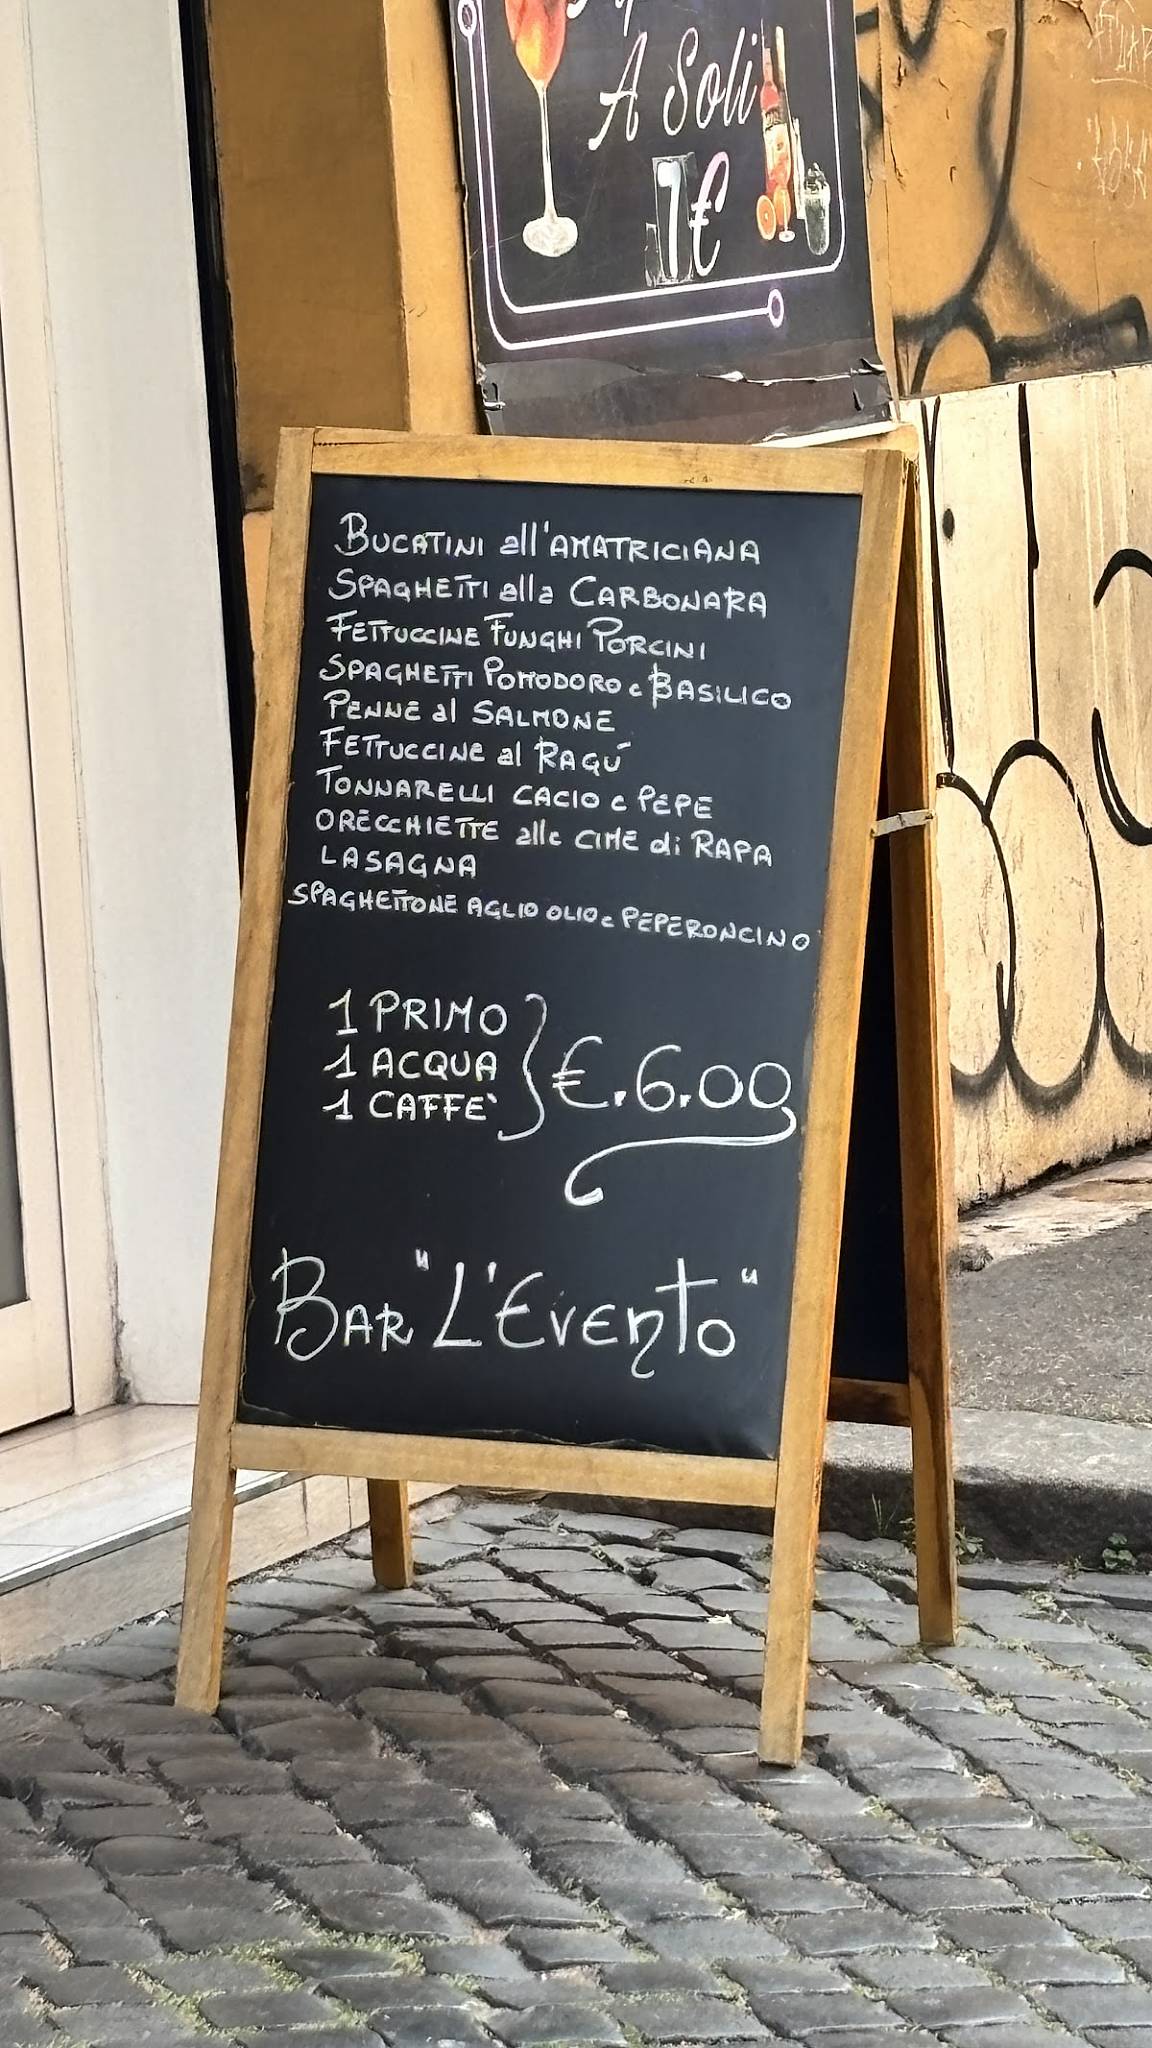 A Soli
1€
BUCATINI all'AMATRICIANA
SPAGHETTI alla CARBONARA
FETTUCCINE FUNGHI PORCINI
SPAGHETTI POMODORO e BASILICO
PENNE al SALMONE
FETTUCCINE al RAGÚ
TONNARELLI CACIO e PEPE
ORECCHIETTE alle CIME di RAPA
LASAGNA
SPAGHETTONE AGLIO OLIO e PEPERONCINO
1 PRIMO
1 ACQUA
1 CAFFE'
€.6.00
BAR "L'EVENTO"